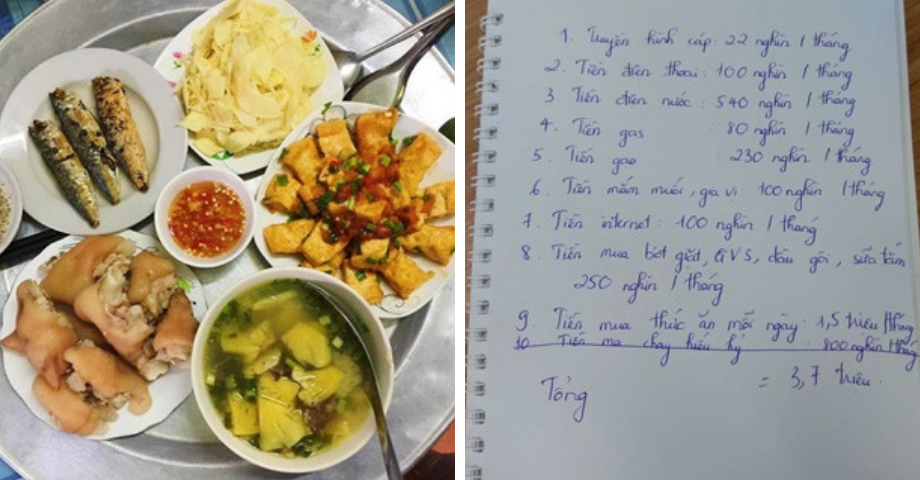 1. Truyền hình cáp: 22 nghìn 1 tháng
2. Tiền điện thoại: 100 nghìn 1 tháng
3. Tiền điện nước: 540 nghìn 1 tháng
4. Tiền gas : 80 nghìn 1 tháng
5. Tiền gạo : 230 nghìn 1 tháng
6. Tiền mắm muối, gia vị: 100 nghìn 1 tháng
7. Tiền internet: 100 nghìn 1 tháng
8. Tiền mua bột giặt, GVS, dầu gội, sữa tắm
250 nghìn 1 tháng
9. Tiền mua thức ăn mỗi ngày: 1,5 triệu 1 tháng
10. Tiền ma chay hiếu hỷ : 800 nghìn 1 tháng
Tổng = 3,7 triệu.